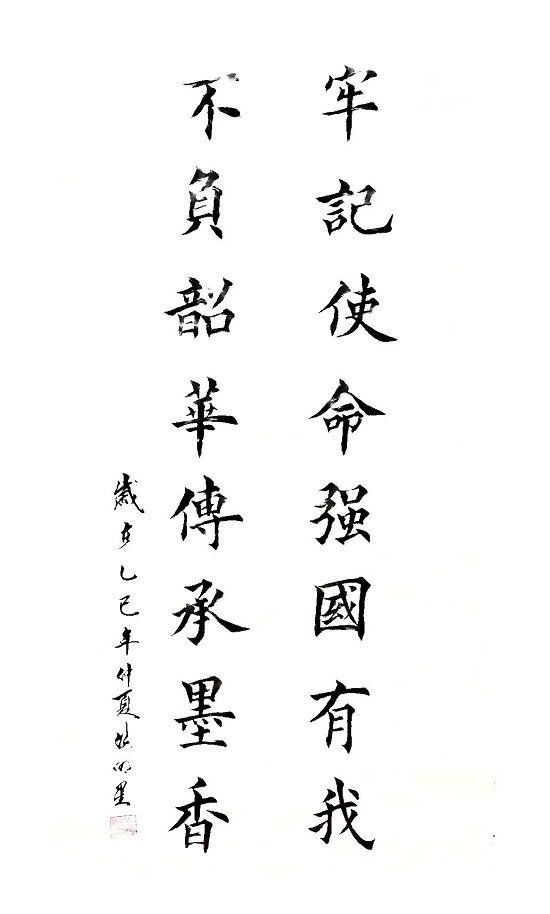 牢記使命强國有我
不負韶華傳承墨香
歲在乙巳年仲夏